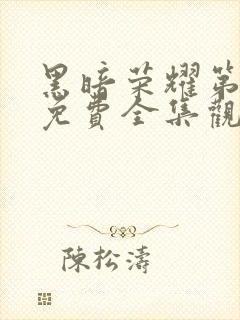 黑暗荣耀第
免費全集觀
陳松濤